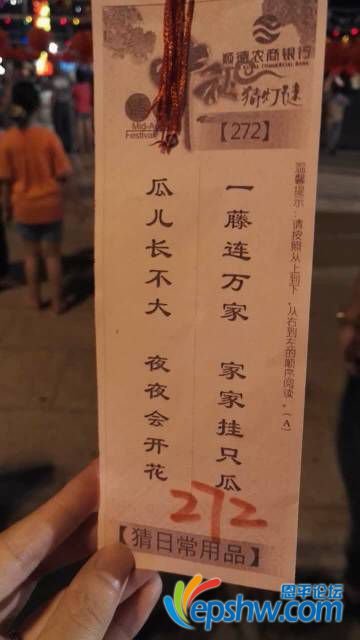 顺德农商银行
猜灯谜
Mid-A
Festival
【272】
温馨提示:请按照从上到下,从右到左的顺序阅读。(A)
一藤连万家 家家挂只瓜
瓜儿长不大 夜夜会开花
272
【猜日常用品】
恩平论坛
epshw.com